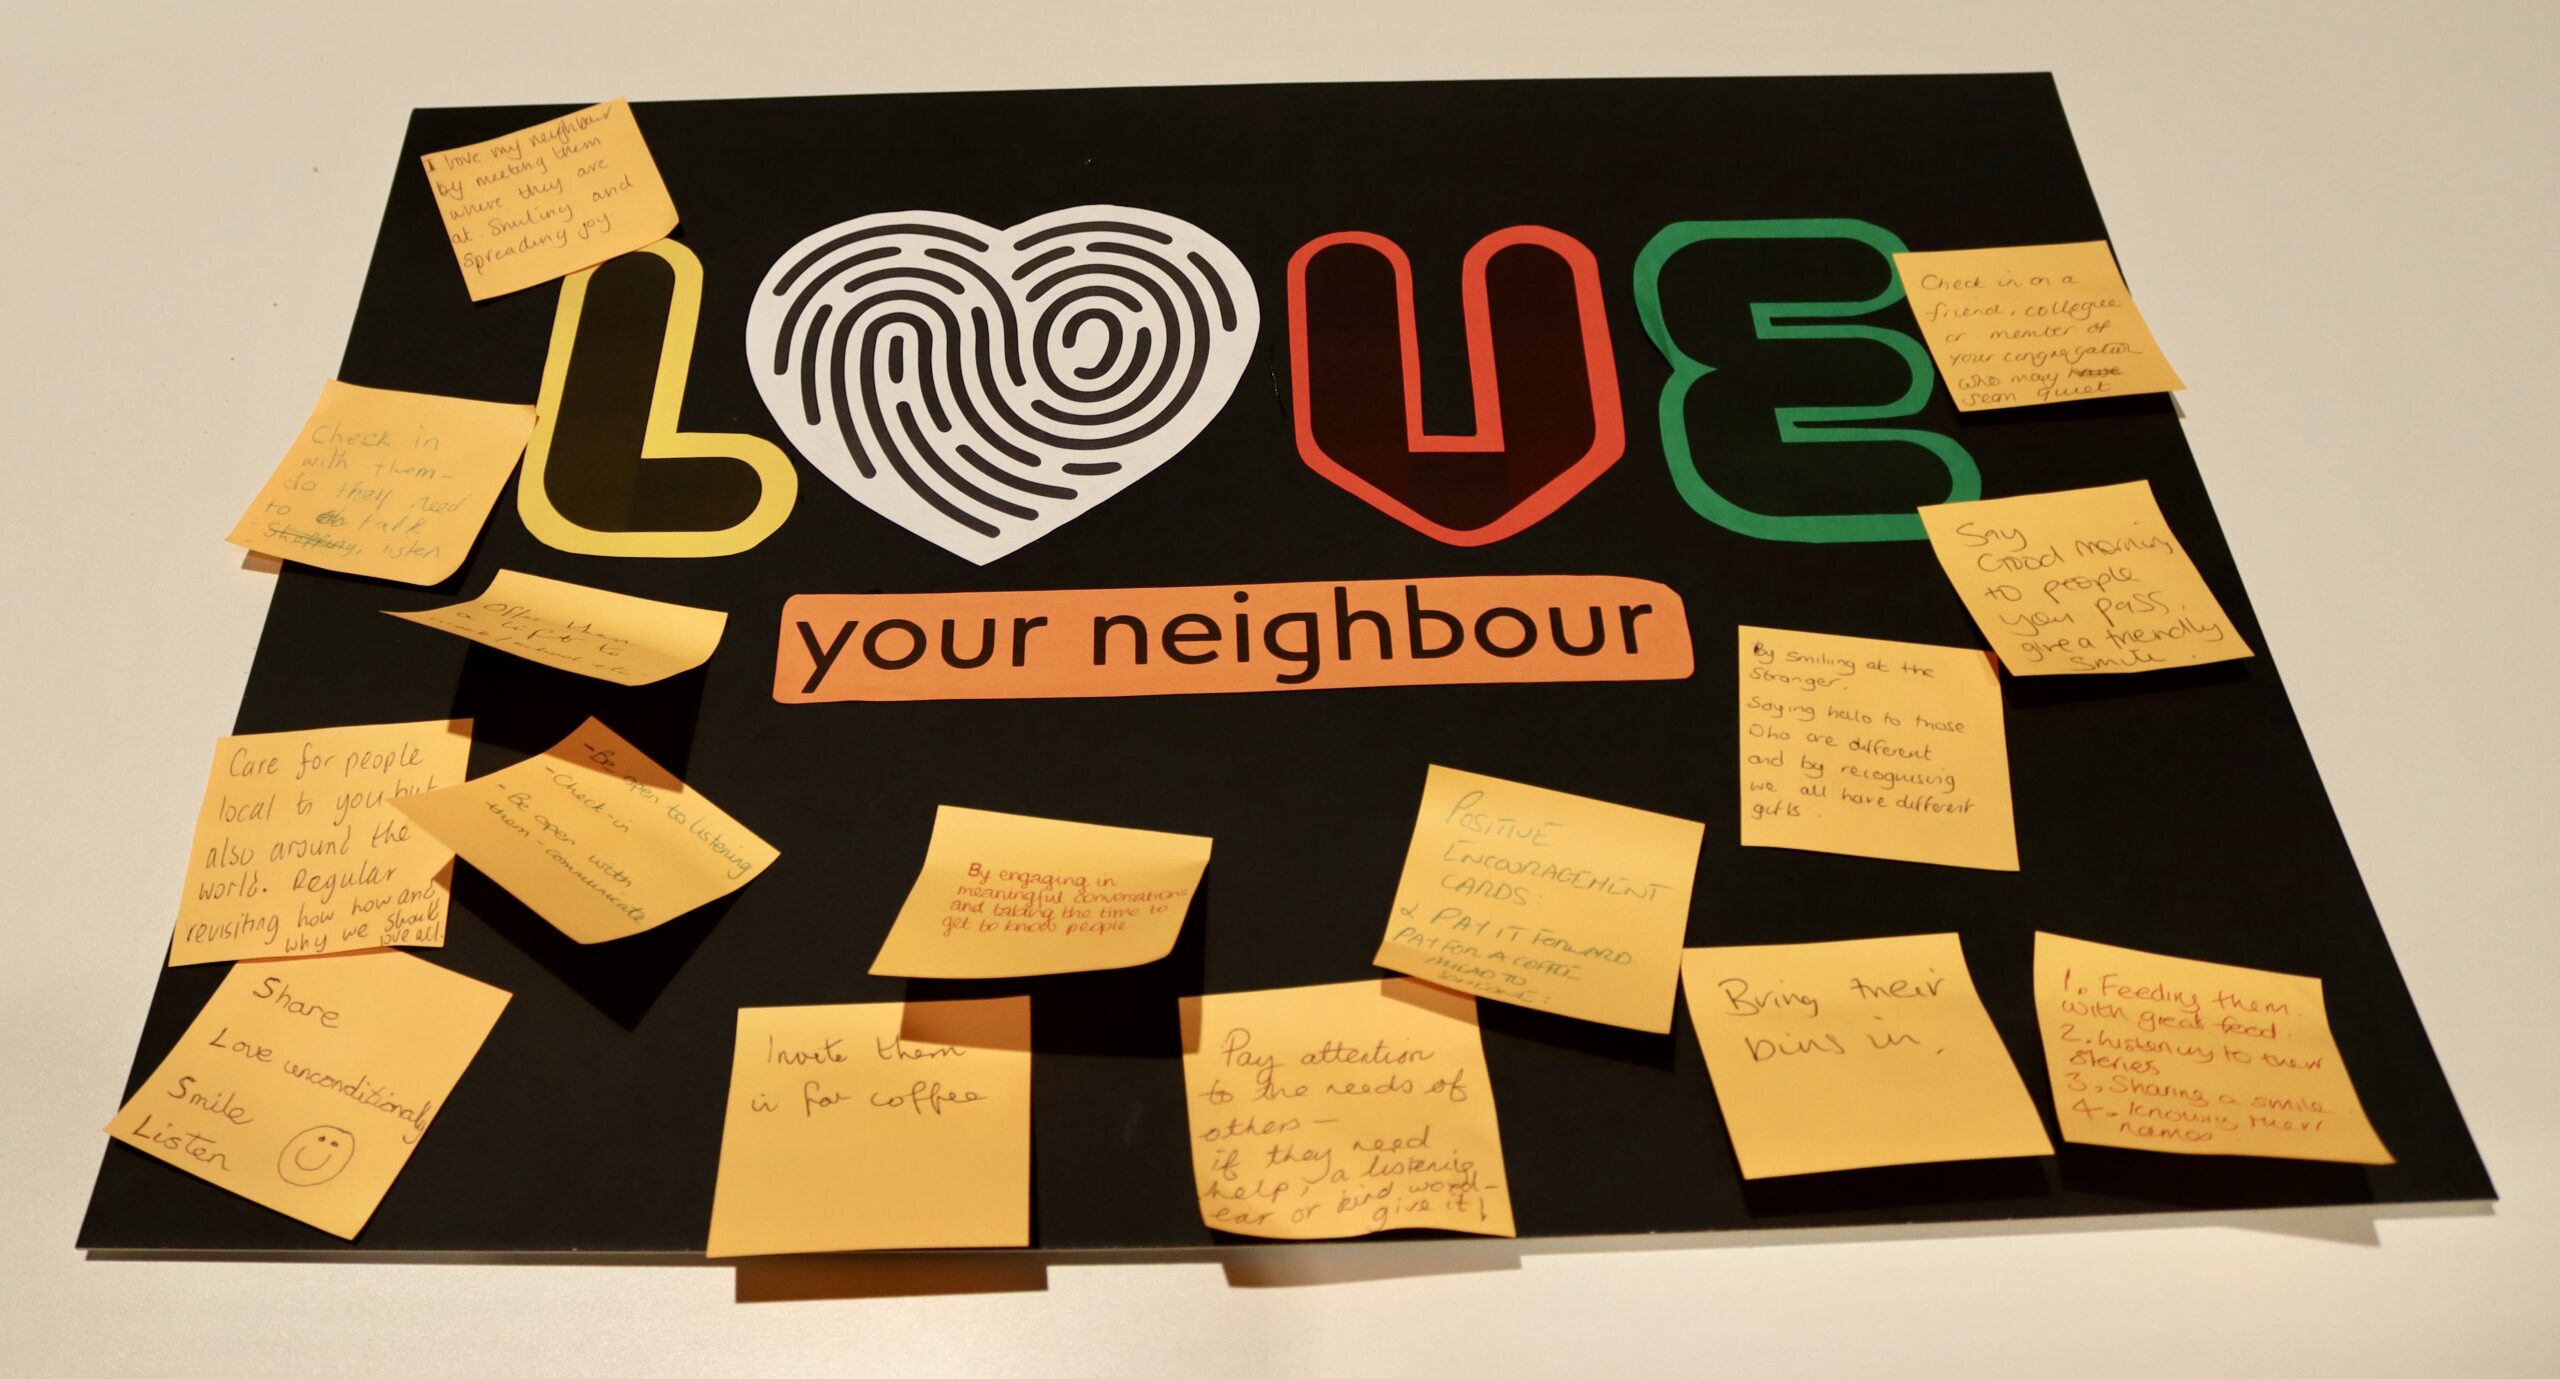 I love my neighbour
by meeting them
where they are
at. Smiling and
spreading joy.
LOVE
your neighbour
Check in on a
friend, collegue
or member of
your congregation
who may have
seem quiet
Check in
with them -
do they need
to talk
- Shopping, listen
Say
Good morning
to people
you pass,
give a friendly
smile.
Offer them
a lift to
work/school etc.
By smiling at the
stranger.
Saying hello to those
who are different
and by recognising
we all have different
gifts.
Care for people
local to you but
also around the
world. Regular
revisiting how how and
why we should
love all.
- Be open to listening
- Check-in
- Be open with
them - communicate
By engaging in
meaningful conversations
and taking the time to
get to know people
POSITIVE
ENCOURAGEMENT
CARDS:
2 PAY IT FORWARD
PAY FOR A COFFEE
TO
SOMEONE:
Share
Love unconditionally
Smile
Listen
Invite them
in for coffee
Pay attention
to the needs of
others -
if they need
help, a listening
ear or kind word -
give it!
Bring their
bins in.
1. Feeding them
with great food.
2. Listening to their
stories
3. Sharing a smile
4. Knowing their
names